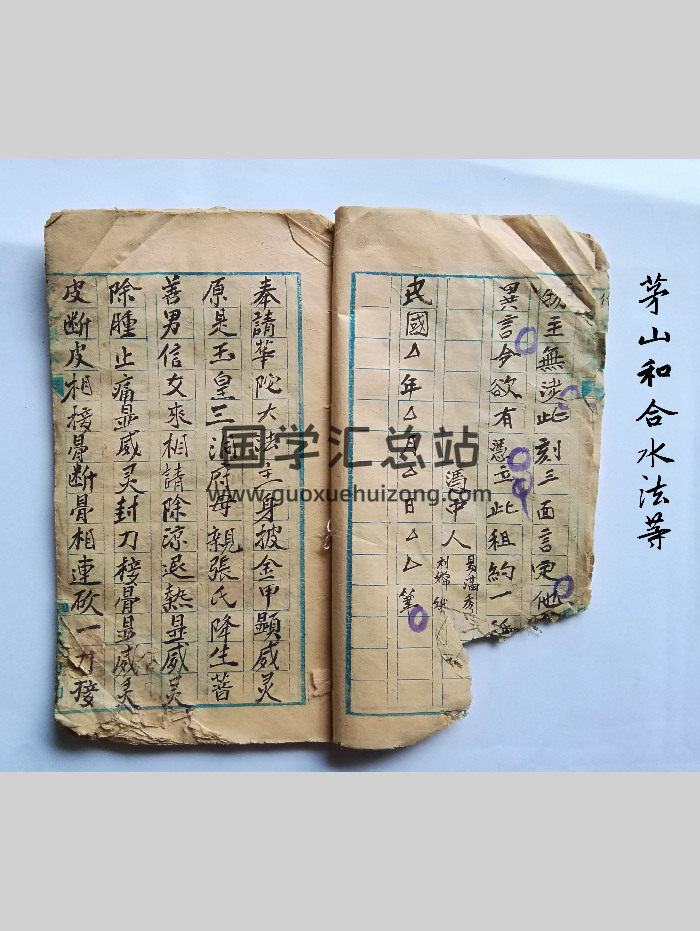 茅山和合水法等
主無涉此刻三面言定他
異言今欲有憑立此租約一
憑中人
易滿秀
民國△年△月△日△△筆
奉請華陀大法主身披金甲顯威灵
原是玉皇三滴府母親張氏降生菩
善男信女來相請除涼退熱显威灵
除腫止痛显威灵封刀接骨显威灵
皮断皮相接骨断骨相連砍一刀接
国学汇总站
www.guoxuehuizong.com